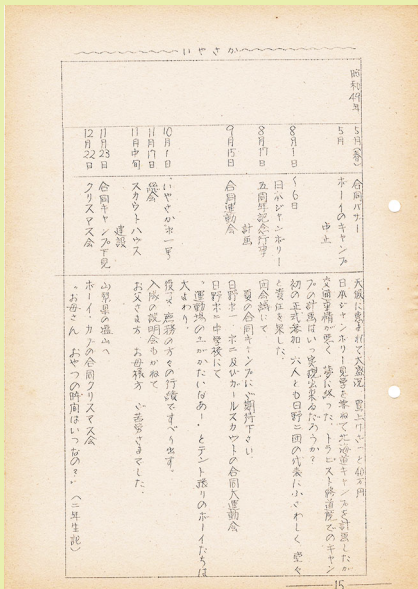 いやさか
昭和49年
5月(春) 合同バザー 天候に恵まれて大盛況 売上げざっと40万円
5月 ボーイのキャンプ 日本ジャンボリー見学を兼ねて北海道キャンプを計画したが
中止 交通事情が悪く 涙に終った トラピスト修道院でのキャン
プの計画はいつ実現出来るだろうか?
8月1日〜6日 日本ジャンボリー 初の正式参加 六人とも日野二団の代表にふさわしく 堂々
と責任を果した
8月17日 五周年記念行事計画 団会議にて
夏の合同キャンプにご期待下さい
9月15日 合同運動会 日野第一 第二及びガールスカウトの合同大運動会
日野第二中学校にて
“運動場の土がかたいなあー”とテント張りのボーイたちは
大まわり。
10月1日 “いやさか第一号”
11月17日 総会 入隊の説明会もかねて
11月中旬 スカウトハウス建設 お父さま方 お母様方 ご苦労さまでした。
11月23日 合同キャンプ下見 山梨県の
12月22日 クリスマス会 ボーイ、カブの合同クリスマス会
“お母さん おやつの時間はいつなの?”(二年生記)
15